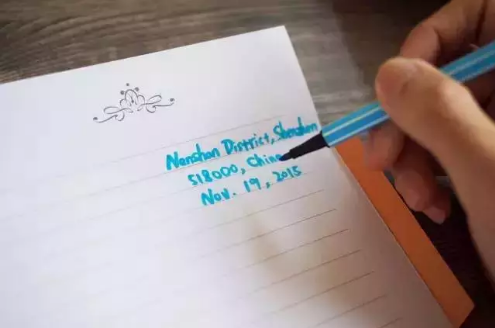 Nanshan District, Shenzhen
518000, China
Nov. 19, 2015